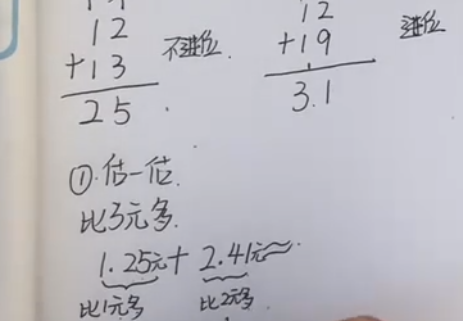 12
+13
25
不进位.
12
+19
3.1
进位
①估一估.
比3元多.
1.25元+2.41元≈
比1元多
比2元多